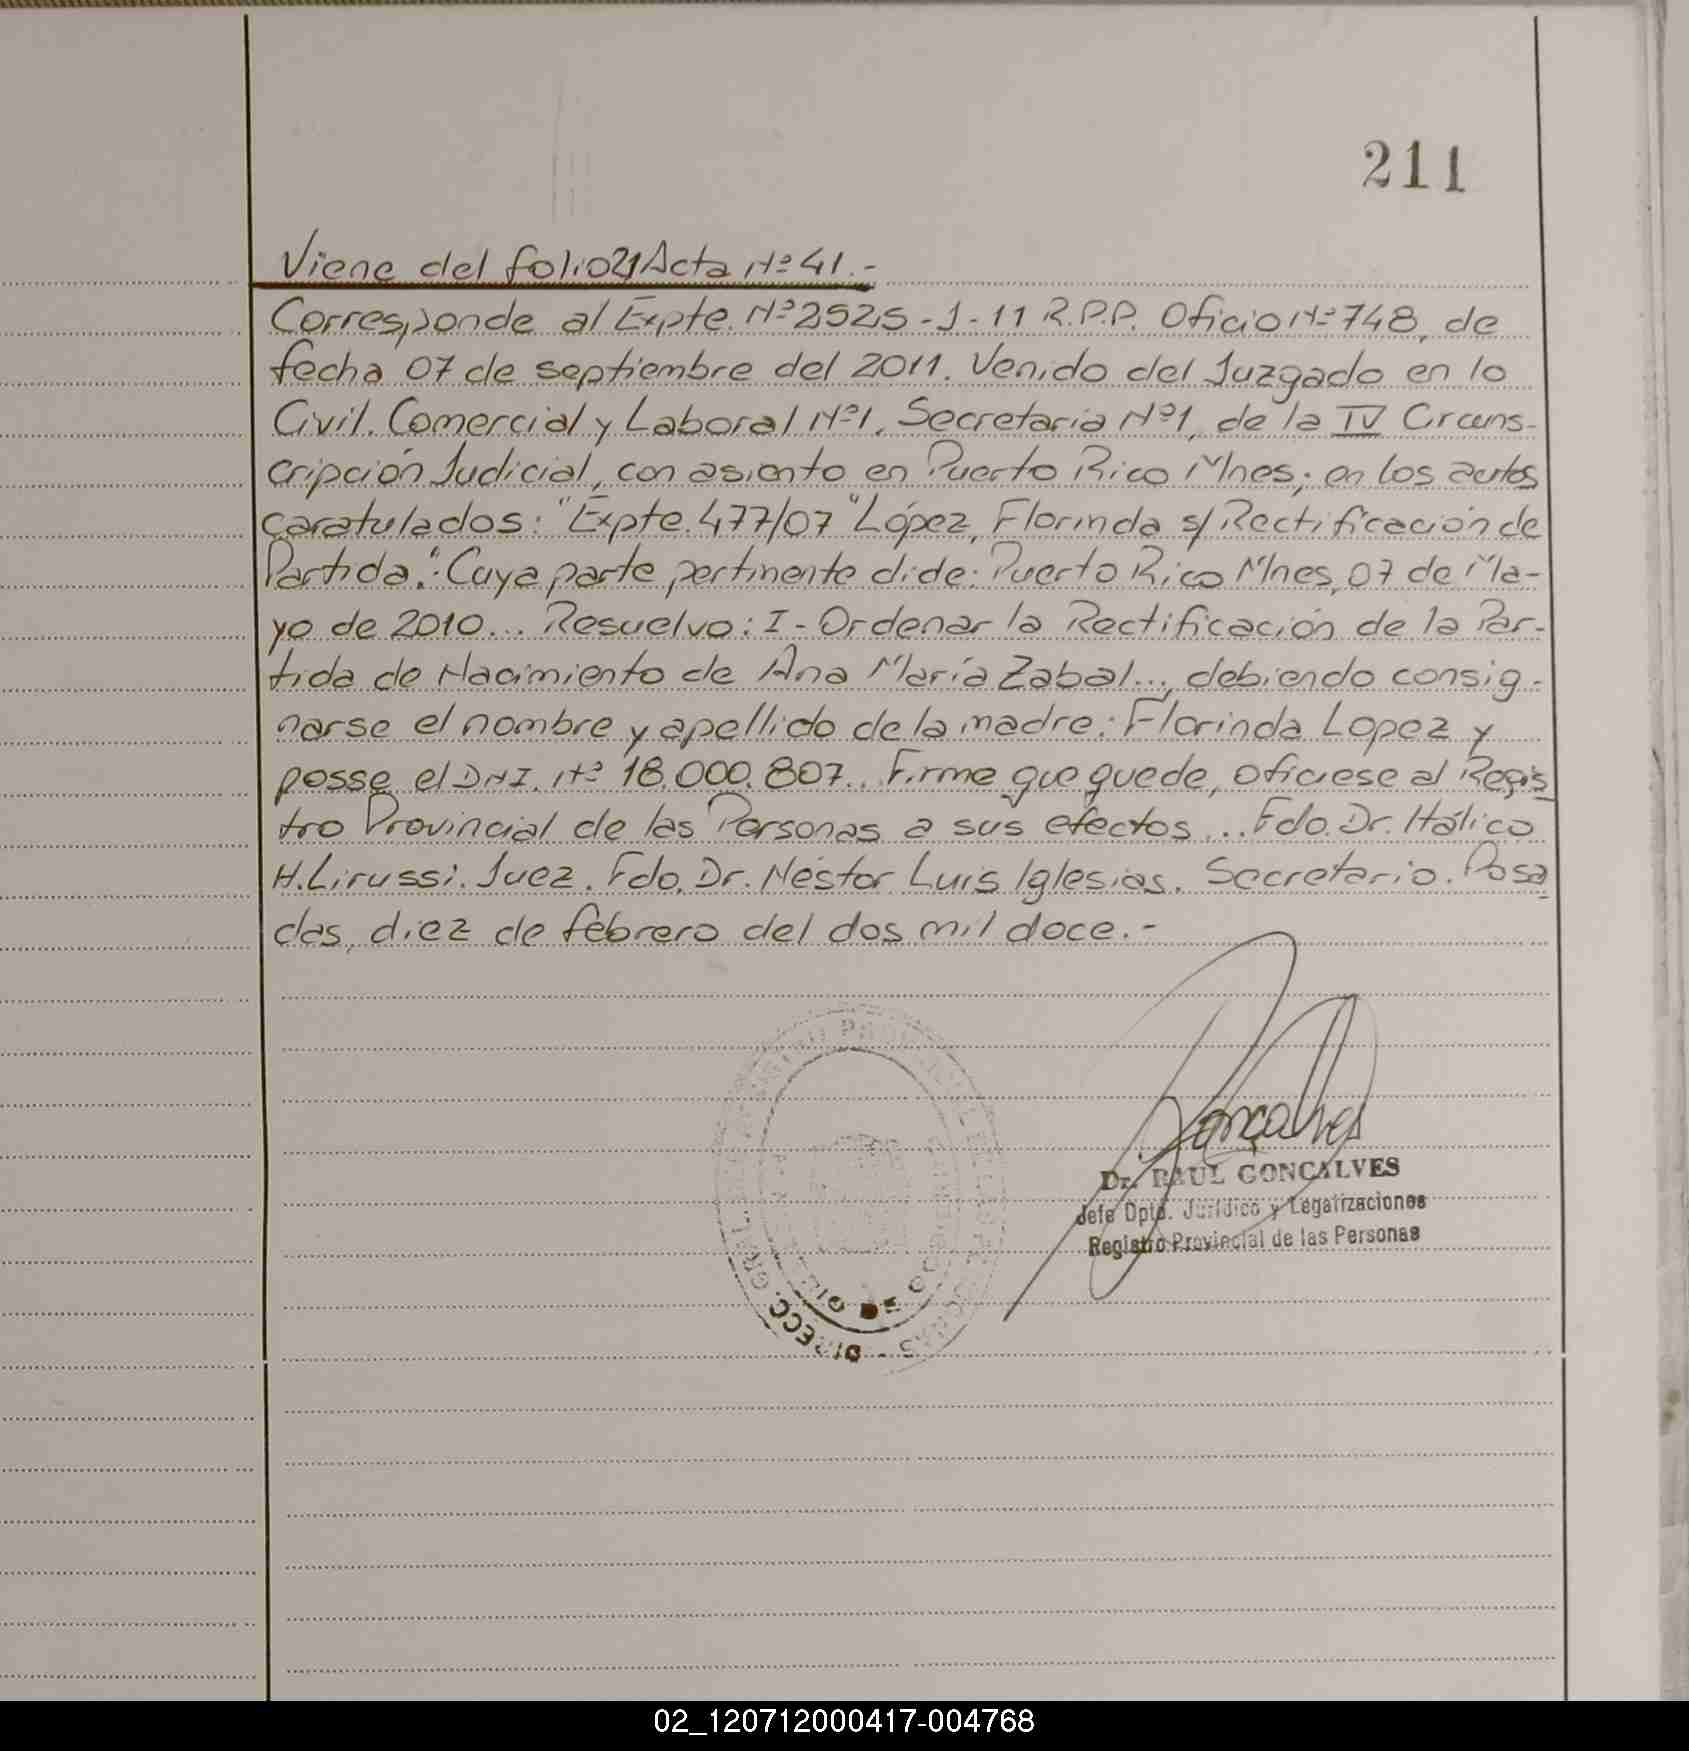 211
Viene del folio 21 Acta Nº 41.-
Corresponde al Expte. Nº 2525-J-11 R.P.P. Oficio Nº 748, de
fecha 07 de septiembre del 2011. Venido del Juzgado en lo
Civil. Comercial y Laboral Nº1. Secretaria Nº1, de la IV Circuns-
cripción Judicial, con asiento en Puerto Rico Mnes; en los autos
caratulados: "Expte. 477/07 "López, Florinda s/ Rectificación de
Partida.": Cuya parte pertinente dide: Puerto Rico Mnes, 07 de Ma-
yo de 2010... Resuelvo: I- Ordenar la Rectificación de la Par-
tida de Nacimiento de Ana María Zabal..., debiendo consig-
narse el nombre y apellido de la madre: Florinda Lopez y
posse el DNI. Nº 18.000.807... Firme que quede, ofíciese al Regis
tro Provincial de las Personas a sus efectos... Fdo. Dr. Itálico
H. Lirussi. Juez. Fdo. Dr. Néstor Luis Iglesias. Secretario. Posa
das, diez de febrero del dos mil doce.-
Goncalves
Dr. RAUL GONCALVES
Jefe Dpto. Jurídico y Legalizaciones
Registro Provincial de las Personas
DIRECC. GRAL.
02_120712000417-004768